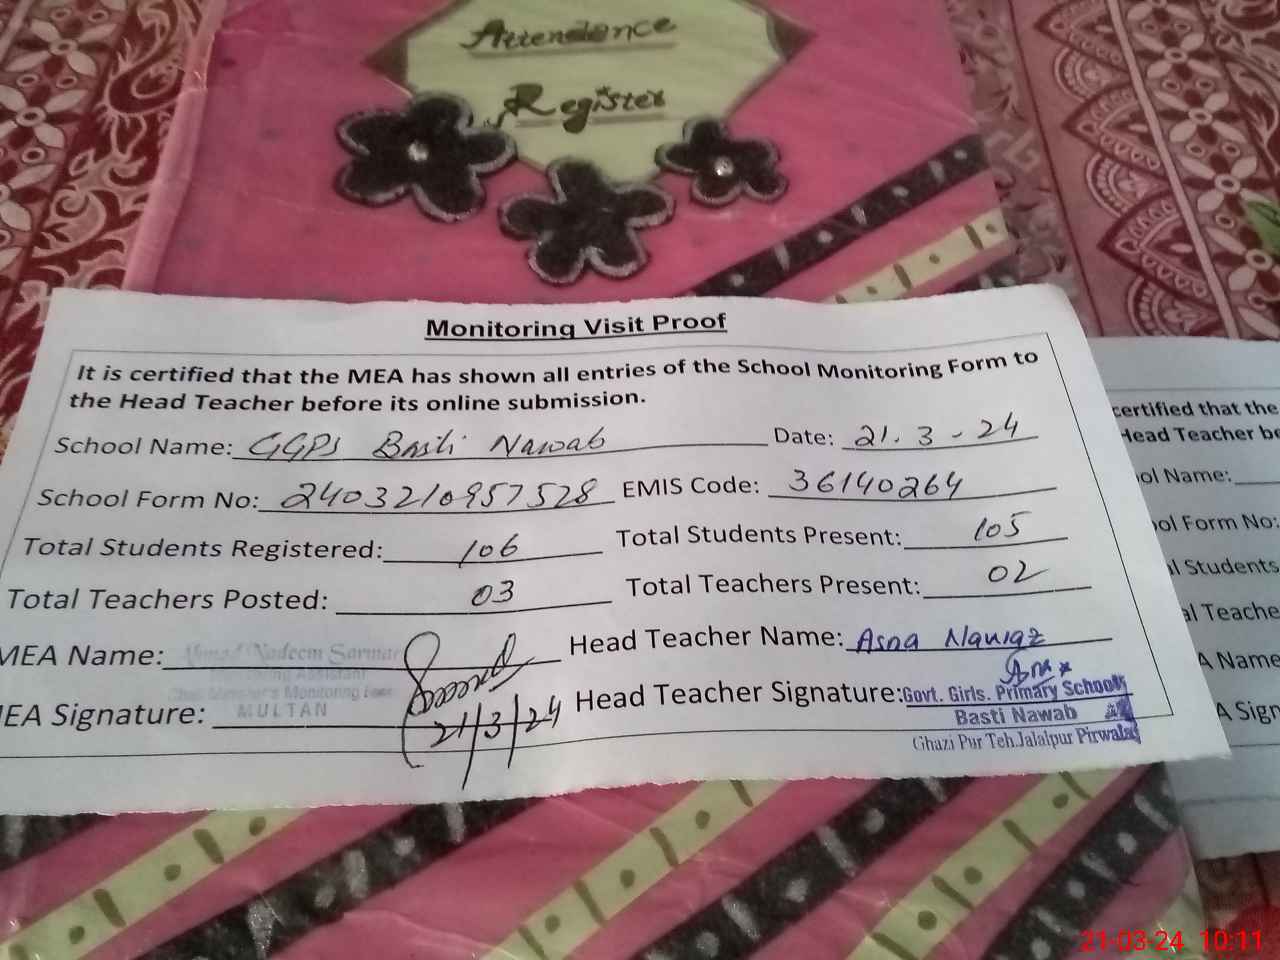 Attendance
Register
Monitoring Visit Proof
It is certified that the MEA has shown all entries of the School Monitoring Form to
the Head Teacher before its online submission.
School Name: GGPS Basti Nawab Date: 21.3-24
School Form No: 2403210957528 EMIS Code: 36140264
Total Students Registered: 106 Total Students Present: 105
Total Teachers Posted: 03 Total Teachers Present: 02
MEA Name: Ahmad Nadeem Sarwar Head Teacher Name: Asna Nawaz
Monitoring Assistant
Chief Minister's Monitoring Force
MULTAN
EA Signature: 21/3/24 Head Teacher Signature: Govt. Girls. Primary School
Basti Nawab
Ghazi Pur Teh.Jalalpur Pirwala
certified that the
Head Teacher be
ol Name:
ol Form No:
l Students
al Teache
A Name
A Sign
21-03-24 10:11